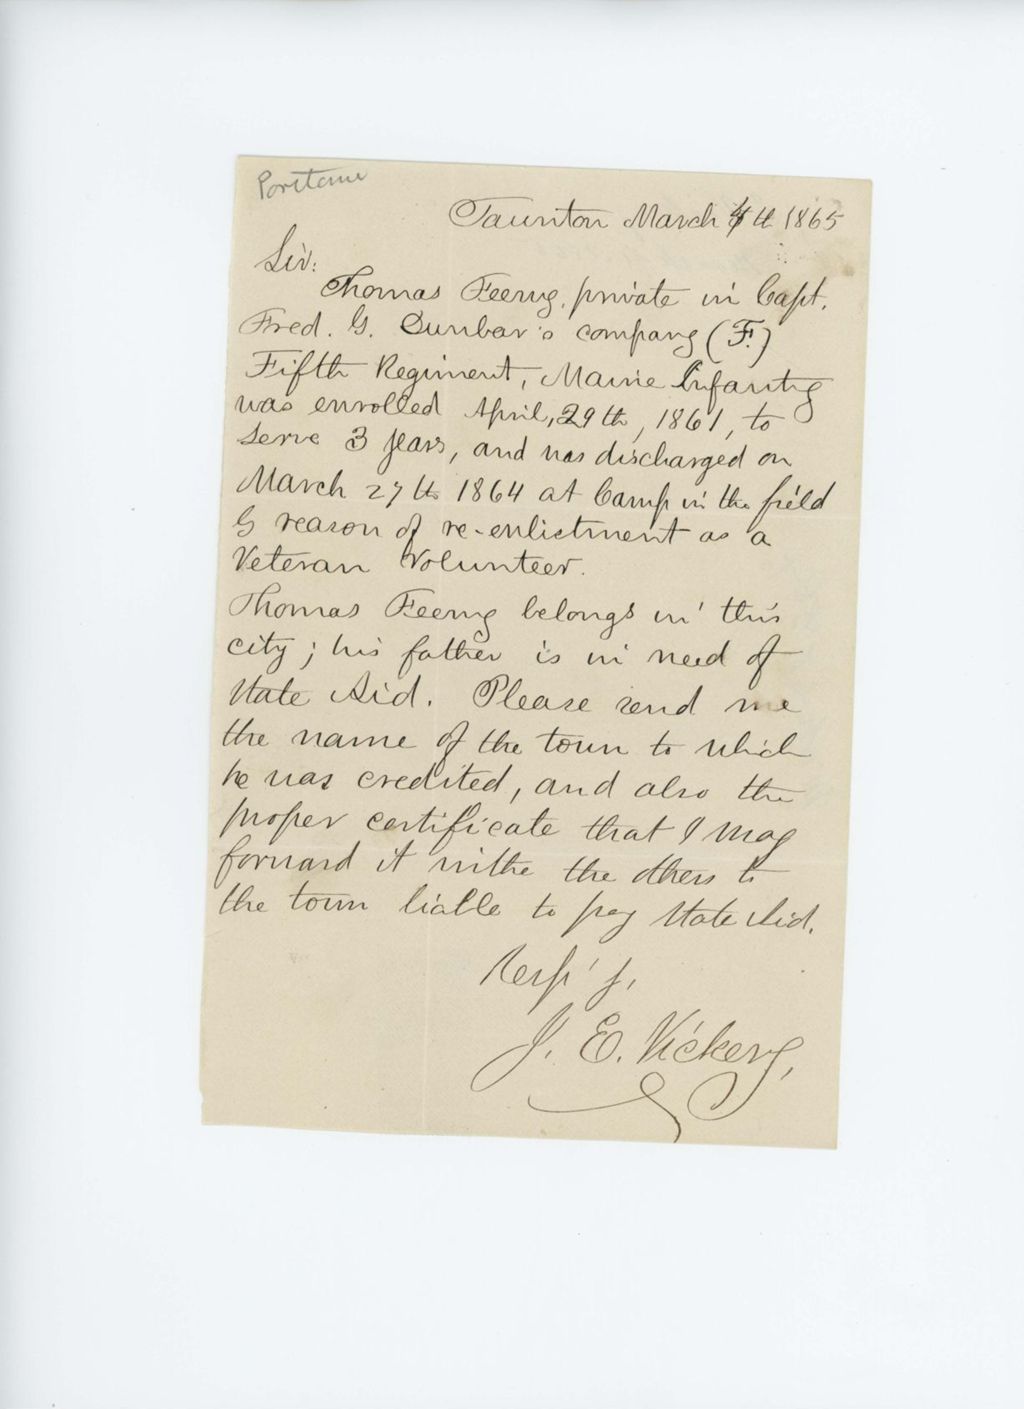 Taunton March 4th 1865
Sir:
Thomas Feeny, private in Capt.
Fred. G. Dunbar's company (F.)
Fifth Regiment, Maine Infantry
was enrolled April, 29th, 1861, to
serve 3 years, and was discharged on
March 27th 1864 at Camp in the field
by reason of re-enlistment as a
Veteran Volunteer.
Thomas Feeny belongs in this
city; his father is in need of
State Aid. Please send me
the name of the town to which
he was credited, and also the
proper certificate that I may
forward it withe the others to
the town liable to pay State Aid.
Resp'y,
J. E. Vickery,